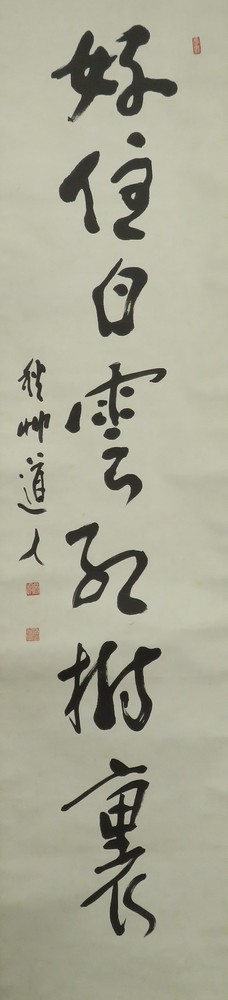 好住白雲紅樹裏
秋艸道人